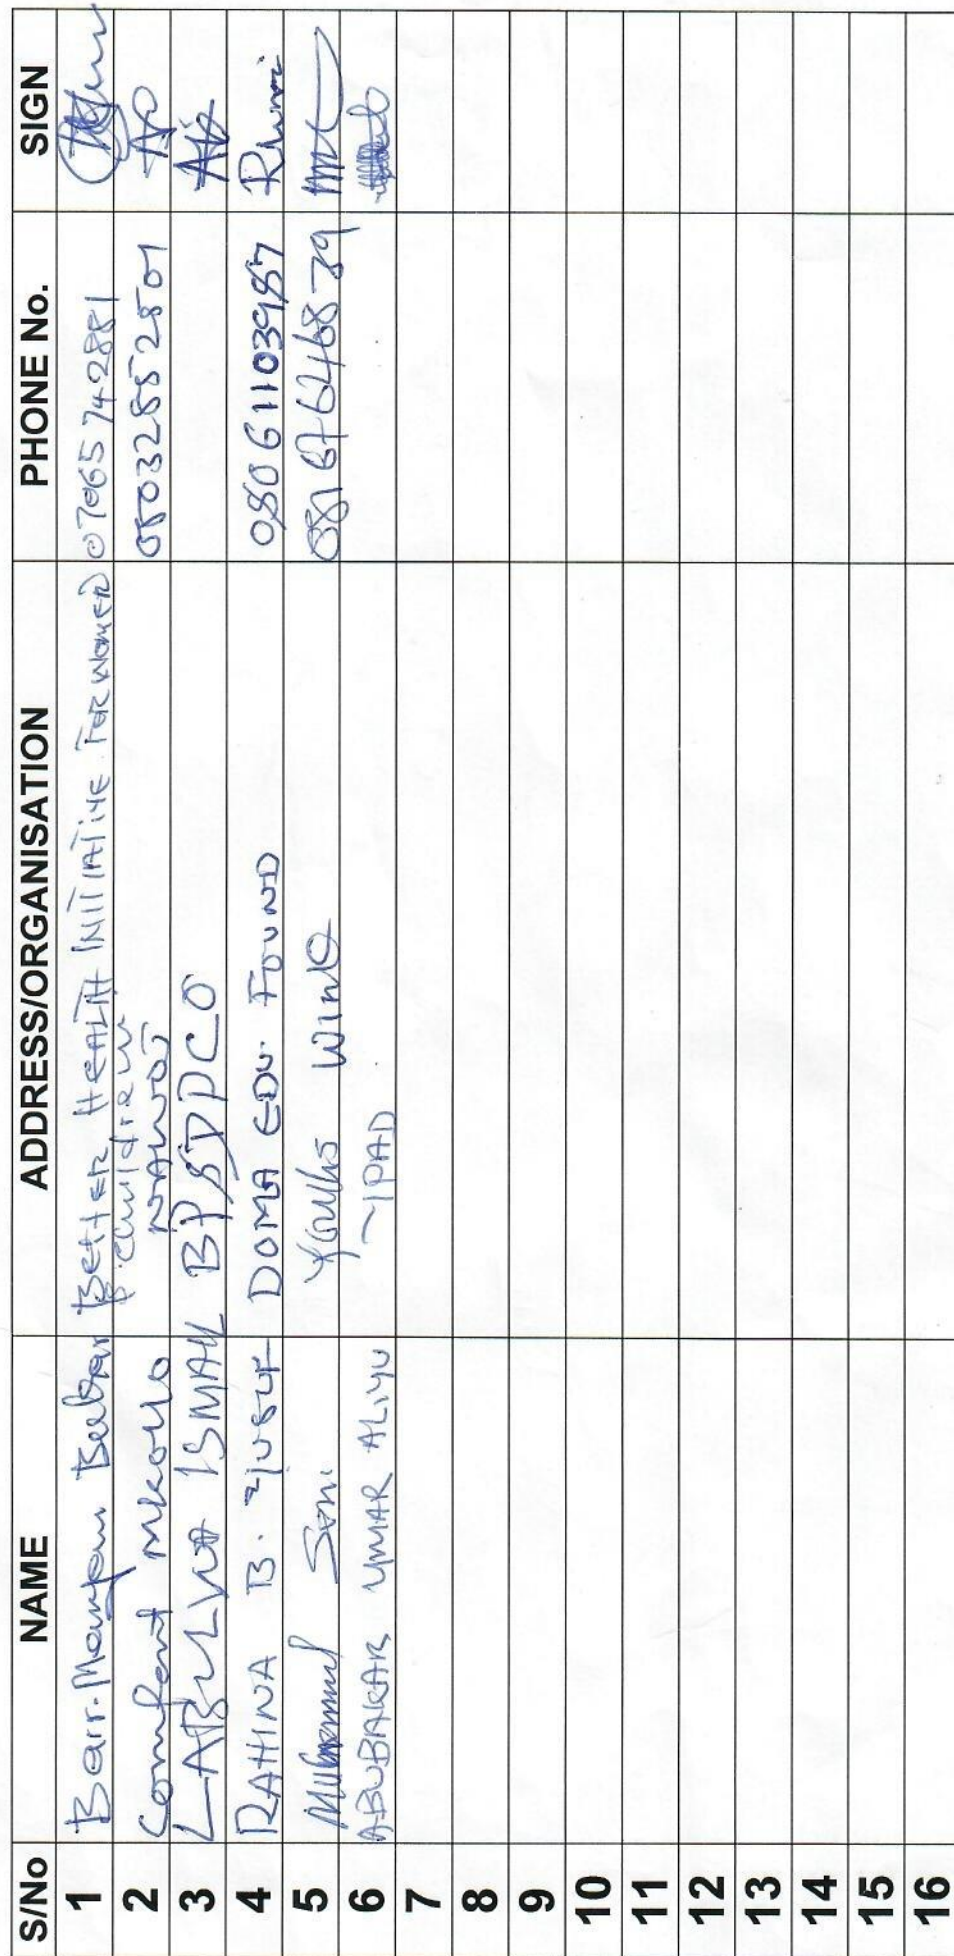 S/No NAME ADDRESS/ORGANISATION PHONE No. SIGN
1 Barr. Maryam Bubar Better HEALTH INITIATIVE FOR WOMEN 07065742881
& Children
2 Comfort NAWOJ 08032852801
3 ISMAIL BPSDPCO
4 RAHINA B. yusuf DOMA EDU. FOUND 08061103987
5 Muhammed Sani Youths Wing
6 ABUBAKAR UMAR ALIYU ~IPAD
7
8
9
10
11
12
13
14
15
16